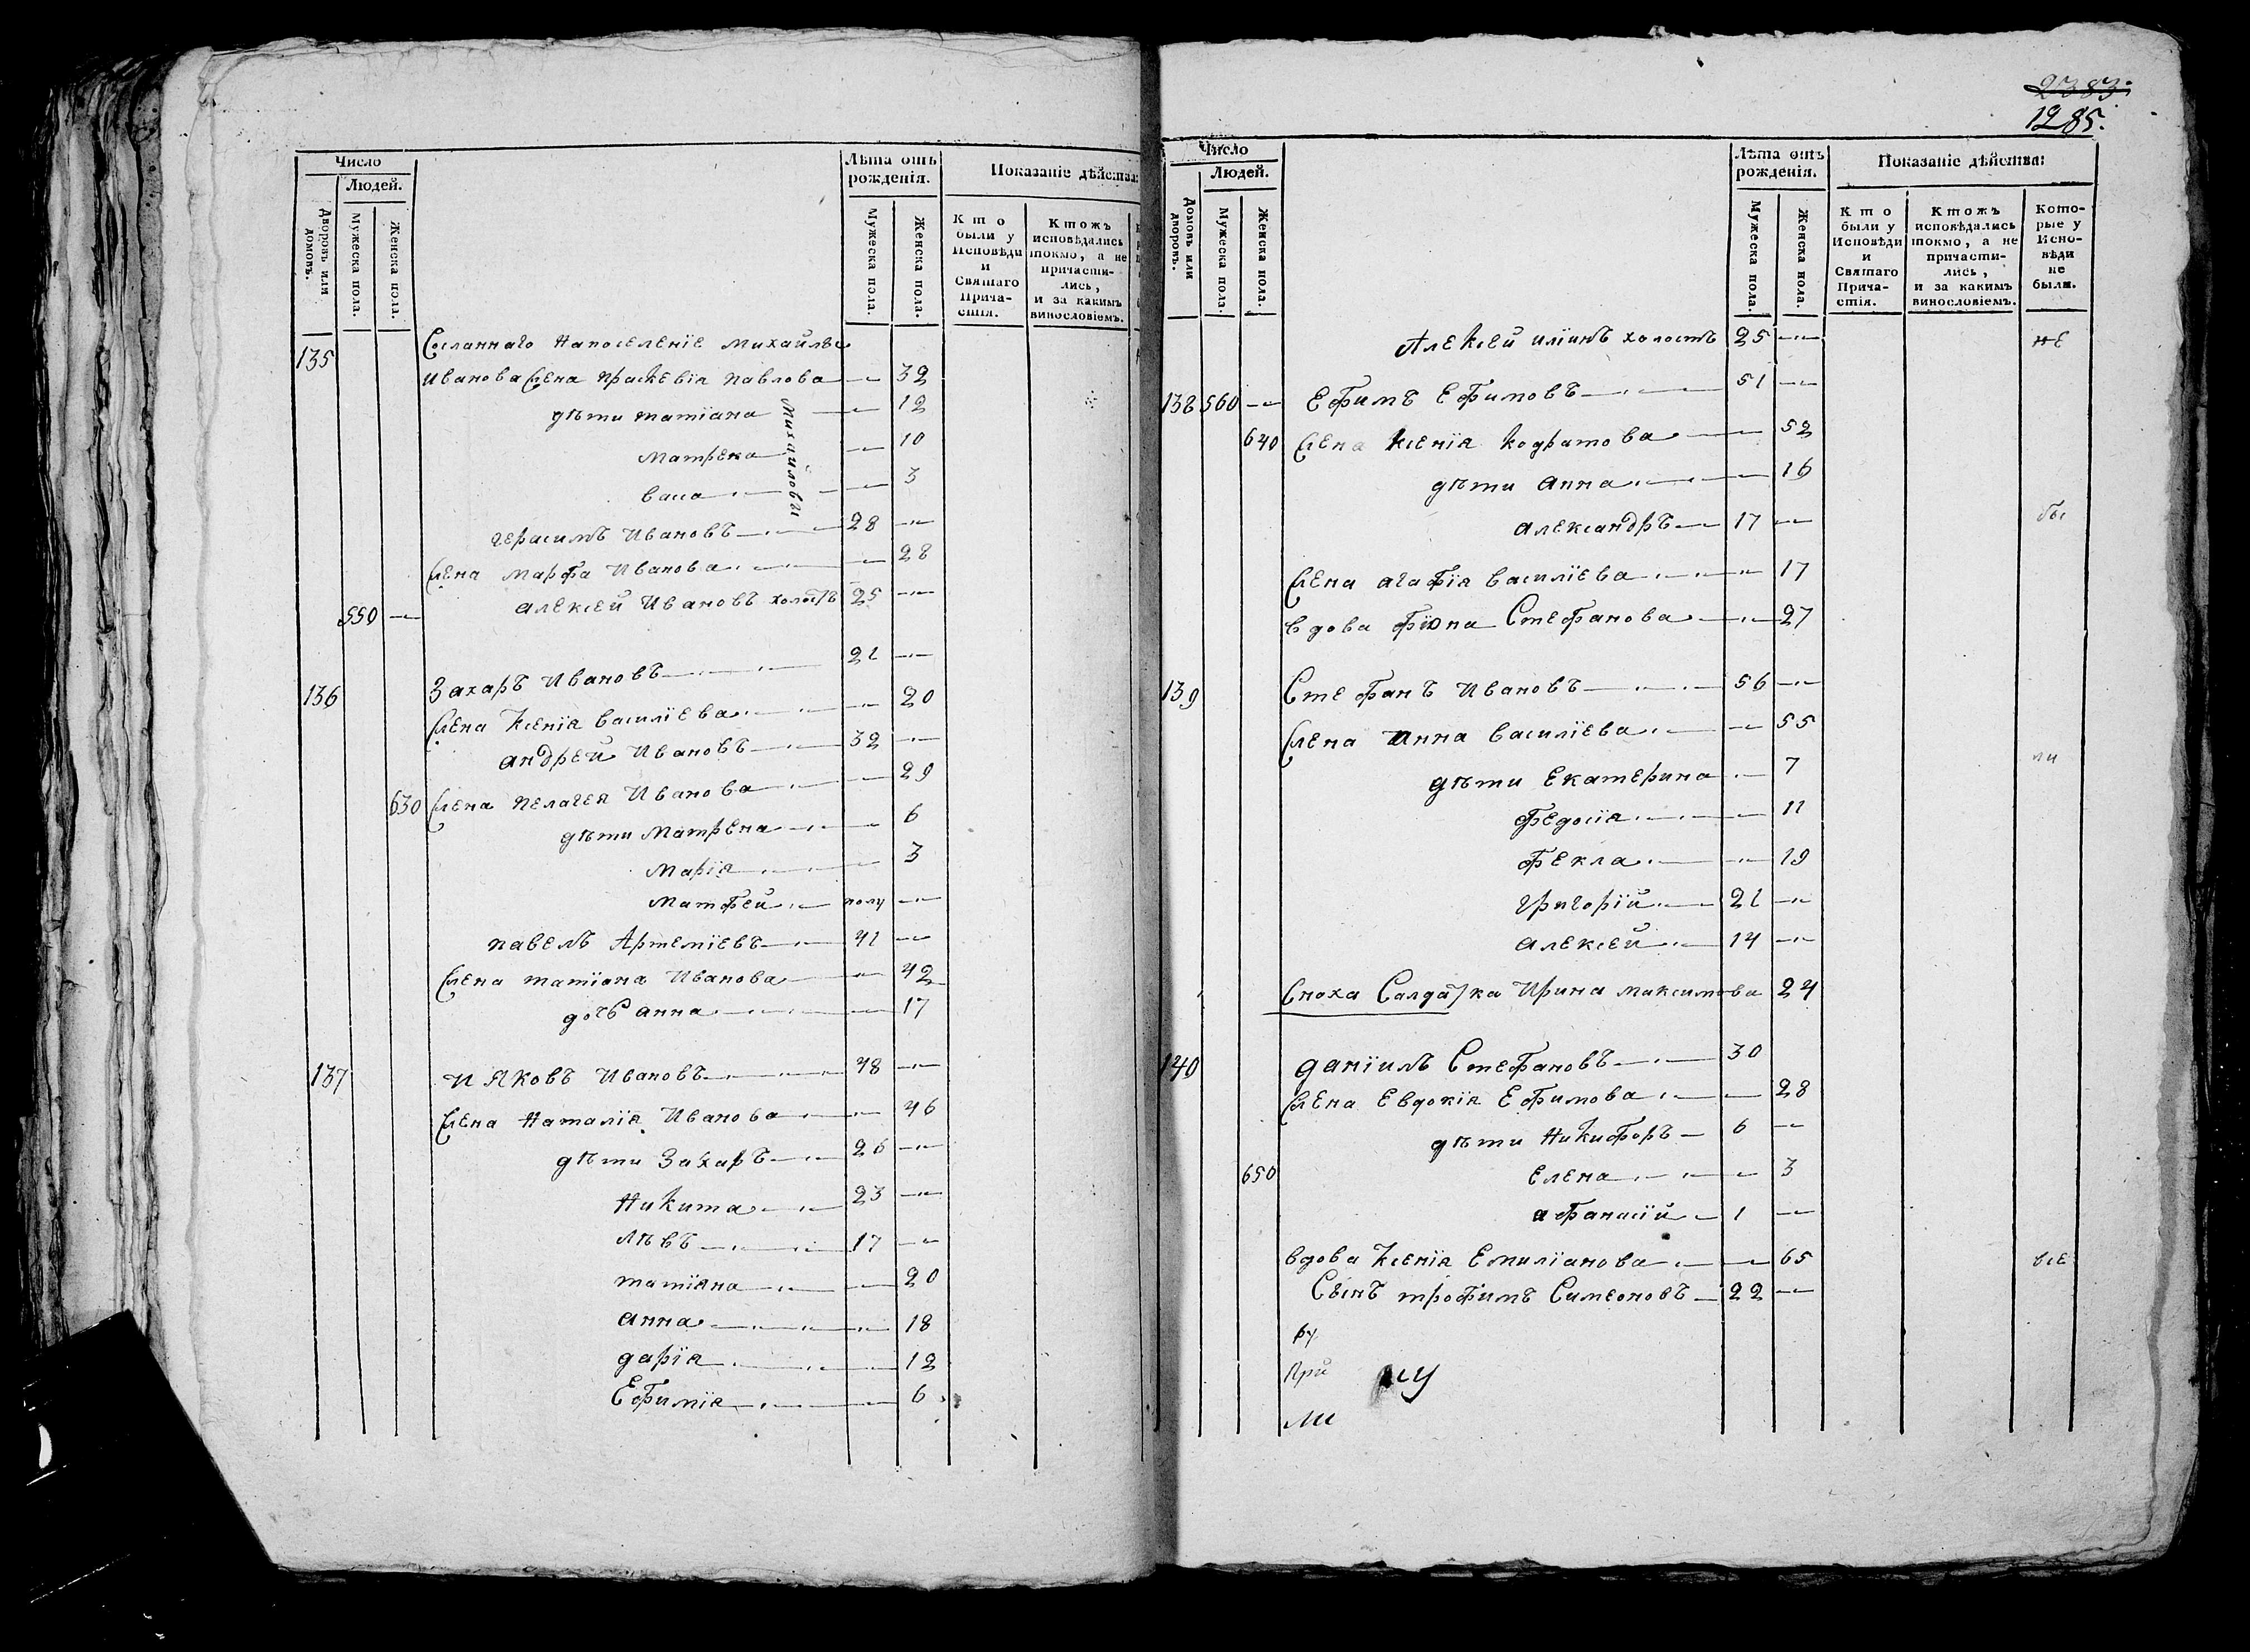 Число
Людей.
Дворовъ или домовъ.
Мужеска пола.
Женска пола.
Лѣта отъ рожденія.
Мужеска пола.
Женска пола.
Показаніе дѣйства:
Кто были у Исповѣди и Святаго Прича-стія.
Ктожъ исповѣдались токмо, а не причасти-лись, и за какимъ винословіемъ.
135 Сосланнаго На поселеніе Михайлы
Иванова жена Праскевія Павлова 32
дѣти Татіана 12
Матрена 10
Васса 3
Михайловы
Герасимъ Ивановъ 28
жена Марфа Иванова 28
550 Алексей Ивановъ холостъ 25
136 Захаръ Ивановъ 21
жена Ксенія Василіева 20
Андрей Ивановъ 32
630 жена Пелагея Иванова 29
дѣти Матрена 6
Марія 3
Матфей полу
Павелъ Артеміевъ 41
жена Татіана Иванова 42
дочь Анна 17
137 Іяковъ Ивановъ 48
жена Наталія Иванова 46
дѣти Захаръ 26
Никита 23
Лѣвъ 17
Татіяна 20
Анна 18
Дарія 12
Ефимія 6
2383.
1285.
Число
Людей.
Домовъ или дворовъ.
Мужеска пола.
Женска пола.
Лѣта отъ рожденія.
Мужеска пола.
Женска пола.
Показаніе дѣйства:
Кто были у Исповѣди и Святаго Прича-стія.
Ктожъ исповѣдались токмо, а не причасти-лись, и за какимъ винословіемъ.
Кото-рые у Испо-вѣди не были.
Алексей Иліинъ холостъ 25 не
138 560 Ефимъ Ефимовъ 51
640 жена Ксенія Кодратова 52
дѣти Анна 16
Александръ 17 бы
жена Агафія Василіева 17
вдова Фіона Стефанова 27
139 Стефанъ Ивановъ 56
жена Анна Василіева 55
дѣти Екатерина 7 ли
Федосія 11
Фекла 19
Григорій 21
Алексей 14
Сноха Салдатка Ирина Максимова 24
140 Даніилъ Стефановъ 30
жена Евдокія Ефимова 28
дѣти Никифоръ 6
650 Елена 3
Афанасій 1
вдова Ксенія Емиліанова 65 все
Сынъ Трофимъ Симеоновъ 22
ру
При